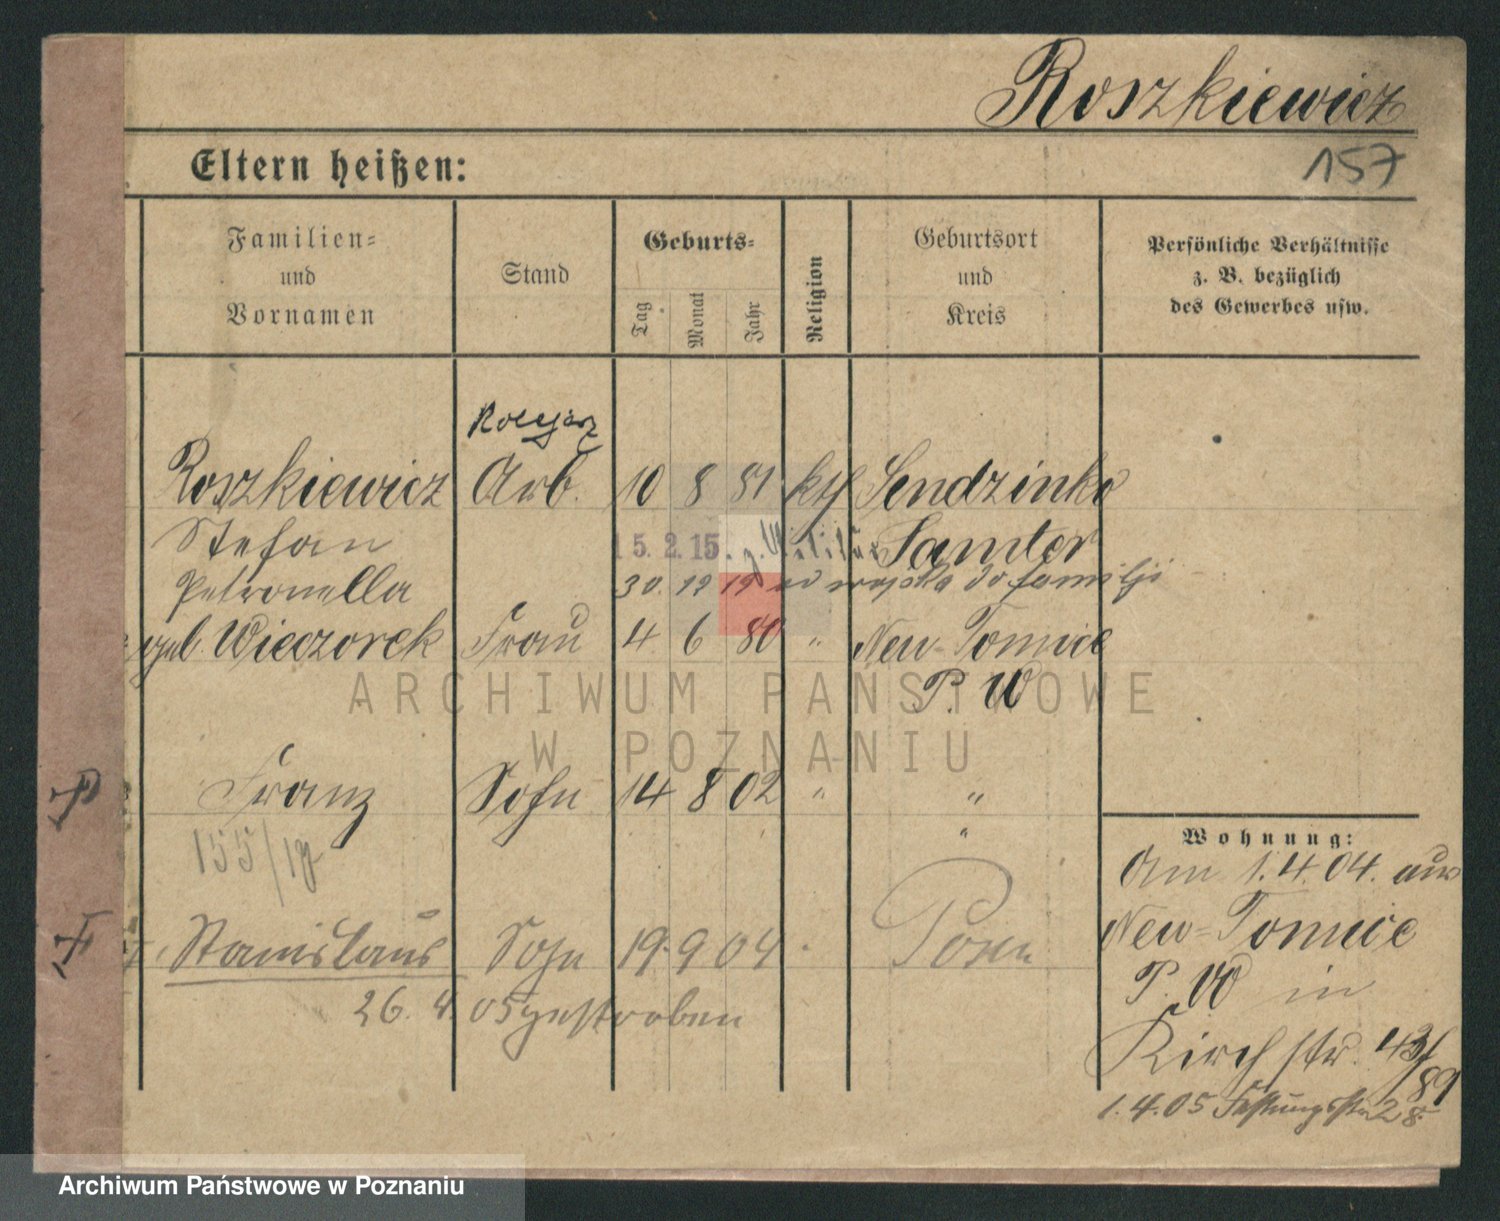 Roszkiewicz
157
Eltern heißen:
Familien- und Vornamen
Stand
Geburts-
Tag
Monat
Jahr
Religion
Geburtsort und Kreis
Persönliche Verhältnisse z. B. bezüglich des Gewerbes usw.
Roszkiewicz Arb. 10 8 81 kth Sendzinko
Stefan 15. 2. 15. z. Militär Samter
Petronella 30. 12 19 od wojska do familji
geb. Wieczorek Frau 4 6 80 " Neu-Tomice
P. W
ARCHIWUM PAŃSTWOWE
W POZNANIU
Franz Sohn 14 8 02 " "
"
Wohnung:
155/19
Am 1.4.04. aus
Neu-Tomice
P. W in
Stanislaus Sohn 19. 9 04 Posen
26. 4. 05 gestorben
Kirchstr. 43/89
1.4.05 Festungsstr. 28
Archiwum Państwowe w Poznaniu